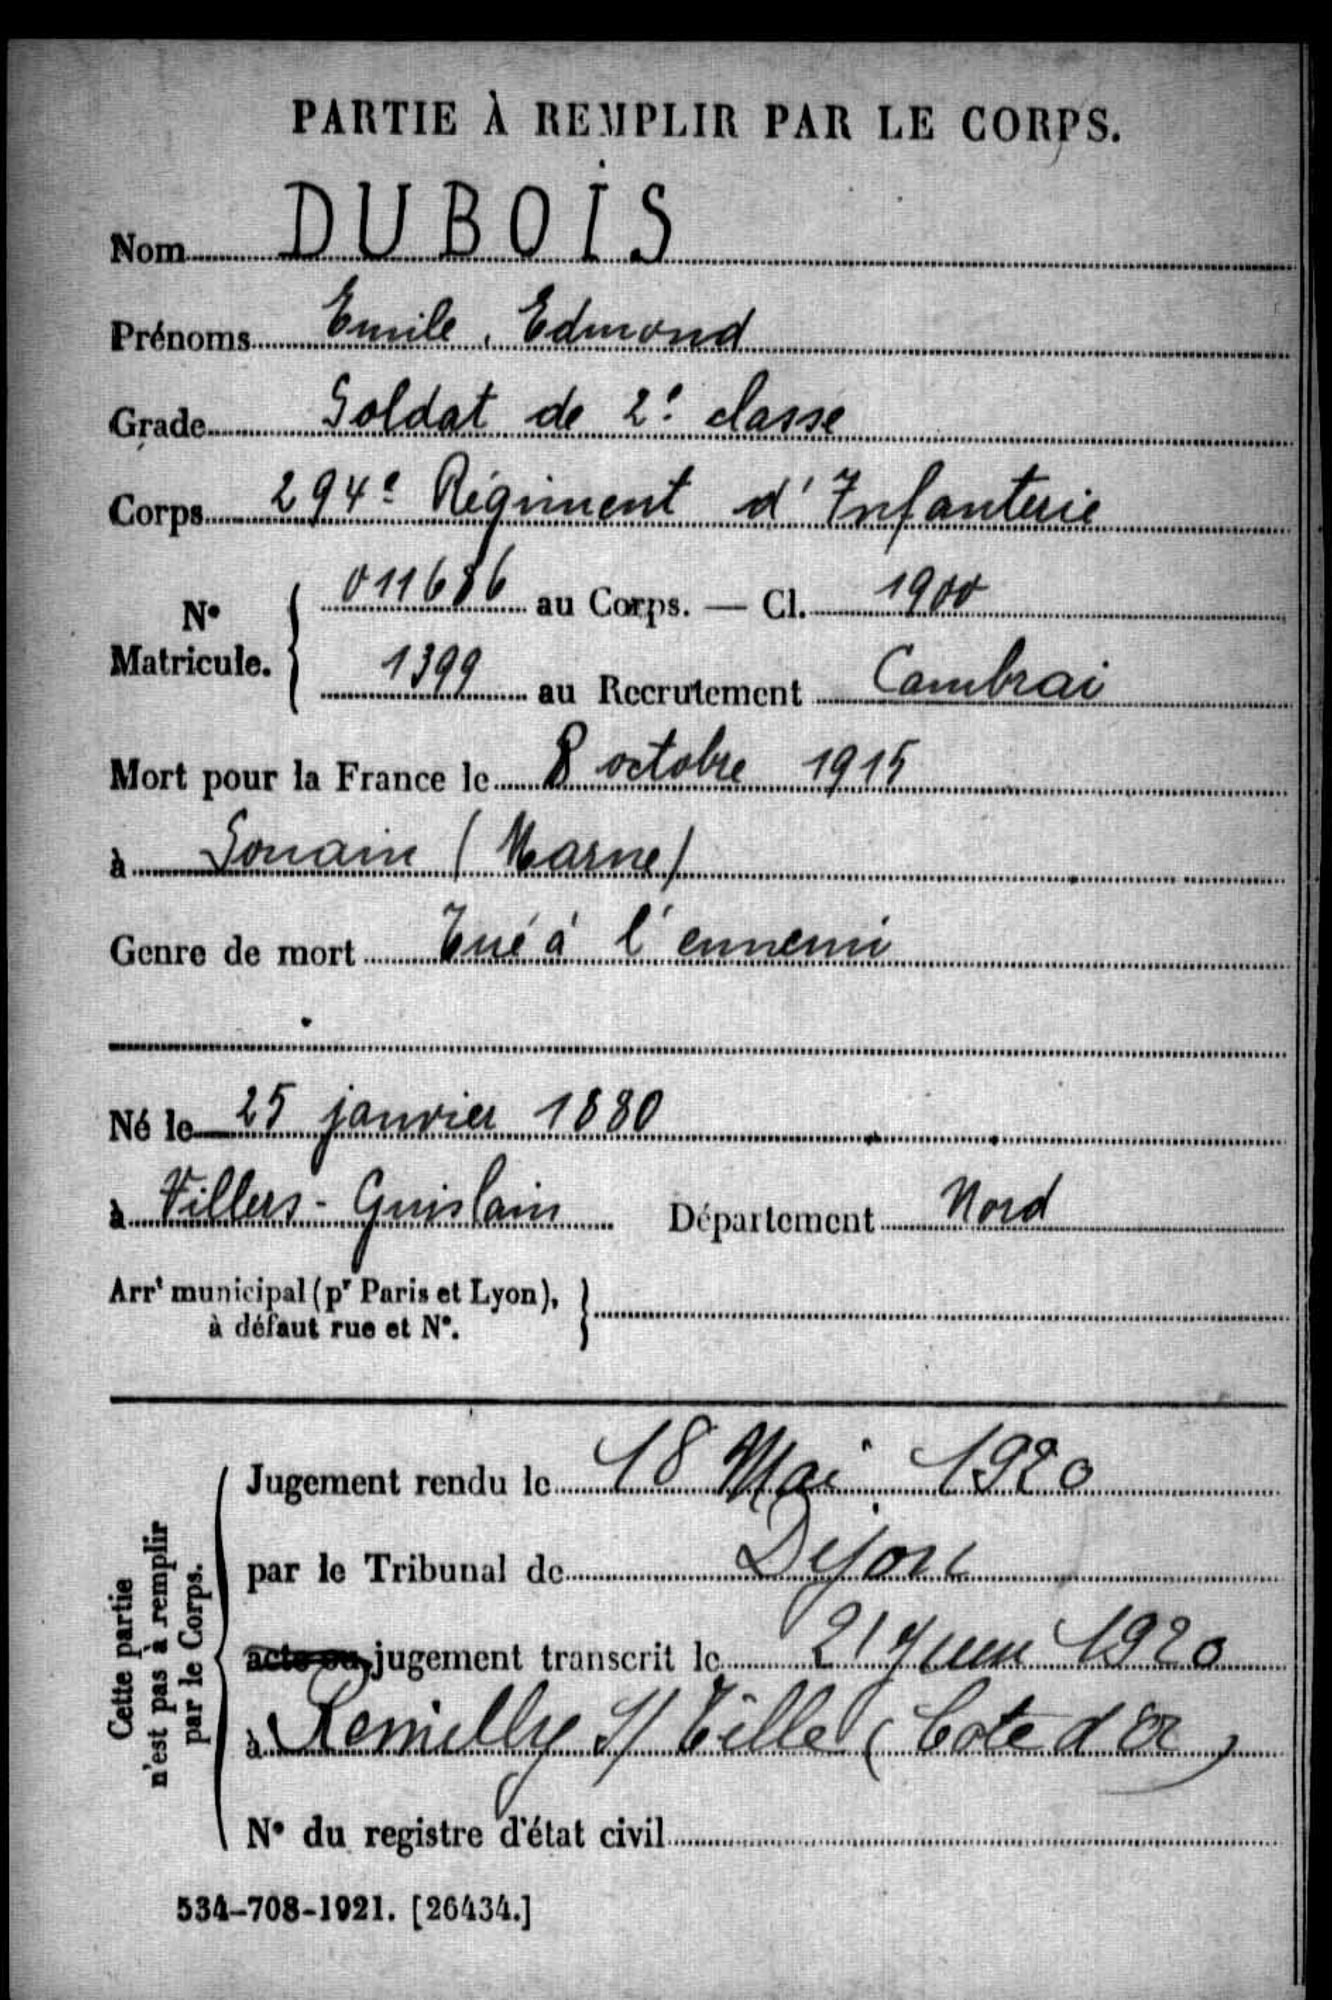 PARTIE À REMPLIR PAR LE CORPS.
Nom DUBOIS
Prénoms Emile, Edmond
Grade Soldat de 2e classe
Corps 294e Régiment d'Infanterie
No Matricule. { 011686 au Corps. — Cl. 1900
1399 au Recrutement Cambrai
Mort pour la France le 8 octobre 1915
à Souain (Marne)
Genre de mort Tué à l'ennemi
Né le 25 janvier 1880
à Villers-Guislain Département Nord
Arrt municipal (pr Paris et Lyon), }
à défaut rue et No.
Cette partie
n'est pas à remplir
par le Corps.
Jugement rendu le 18 Mai 1920
par le Tribunal de Dijon
acte ou jugement transcrit le 21 Juin 1920
à Remilly S/ Tille (Cote d'Or)
No du registre d'état civil
534-708-1921. [26434.]